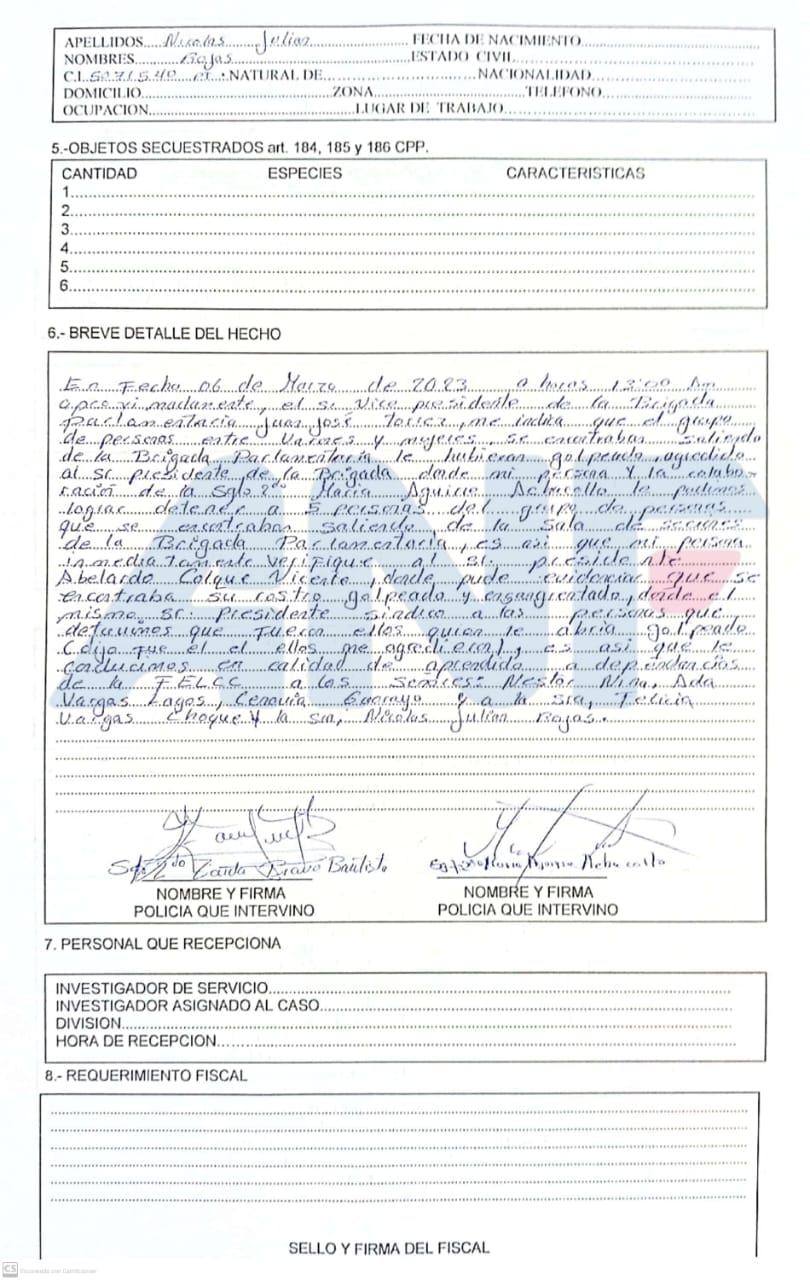 APELLIDOS....Nicolas Julian....FECHA DE NACIMIENTO....
NOMBRES....Rojas....ESTADO CIVIL....
C.I....NATURAL DE....NACIONALIDAD....
DOMICILIO....ZONA....TELEFONO....
OCUPACION....LUGAR DE TRABAJO....
5.-OBJETOS SECUESTRADOS art. 184, 185 y 186 CPP.
CANTIDAD ESPECIES CARACTERISTICAS
1....
2....
3....
4....
5....
6....
6.- BREVE DETALLE DEL HECHO
En Fecha 06 de Marzo de 2023 a horas 13:00 Am
aproximadamente, el sr. Vice presidente de la Brigada
Parlamentaria Juan José Torrez, me indica que el grupo
de personas entre Varones y mujeres, se encontraban saliendo
de la Brigada Parlamentaria le hubieran golpeado, agredido
al sr. presidente de la Brigada donde mi persona y la colabo-
ración de la Sgto 2do Maria Aguirre le pudimos
lograr detener a 5 personas del grupo de personas
que se encontraban saliendo de la sala de
de la Brigada Parlamentaria, es asi que mi persona
inmediatamente verifique al sr. presidente
Abelardo Colque Vicente, donde pude evidenciar que se
encontraba su rostro golpeado y ensangrentado, donde el
mismo sr. Presidente sindico a las personas que
detuvimos que fueron ellos quien le abria golpeado
(dijo fue el el ellos me agredieron), es asi que le
conducimos en calidad de aprendido a dependencias
de la FELCC a los señores: Nestor Nina, Ada
Vargas Lagos, Cenovia y a la sra, Felicia
Vargas Choque y la sra, Nicolas Julian Rojas.
ANF
Sgto 2do Bravo Bautista
Sgto 2do Maria
NOMBRE Y FIRMA NOMBRE Y FIRMA
POLICIA QUE INTERVINO POLICIA QUE INTERVINO
7. PERSONAL QUE RECEPCIONA
INVESTIGADOR DE SERVICIO....
INVESTIGADOR ASIGNADO AL CASO....
DIVISION....
HORA DE RECEPCION....
8.- REQUERIMIENTO FISCAL
SELLO Y FIRMA DEL FISCAL
CS Escaneado con CamScanner